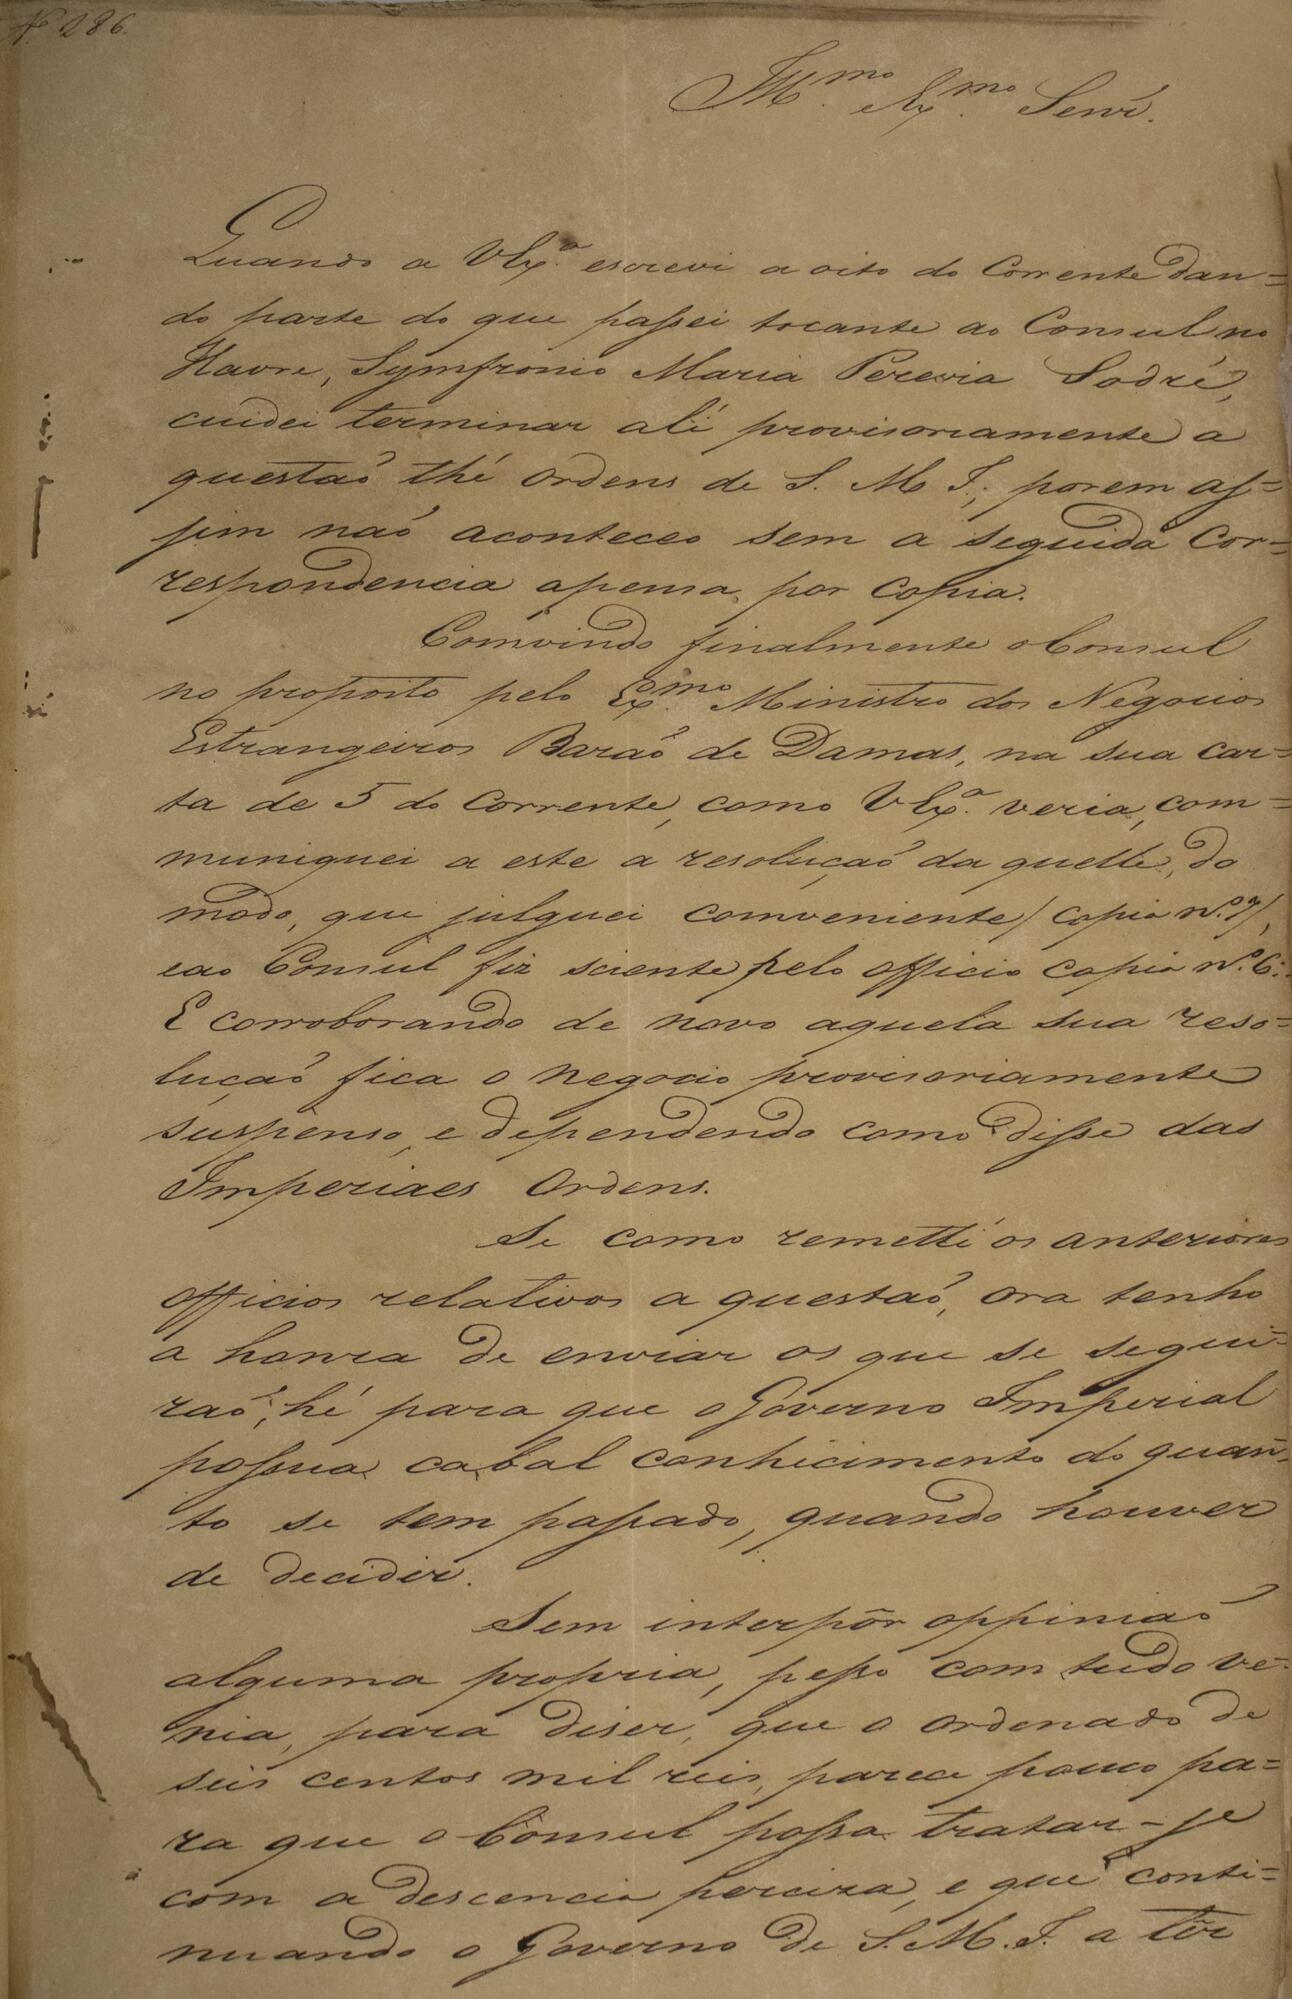 N. 286.
Illmo. Exmo. Senr.
Quando a VExa. escrevi a oito do Corrente dan=
do parte do que passei tocante ao Consul no
Havre, Symfronio Maria Pereira Sodré,
cuidei terminar ali provisoriamente a
questaõ thé Ordens de S. M. I., porem as=
sim naõ aconteceo sem a seguida Cor=
respondencia apensa, por Copia.
Comvindo finalmente o Consul
no proposto pelo Exmo. Ministro dos Negocios
Estrangeiros Baraõ de Damas, na sua car=
ta de 5 do Corrente, como VExa. veria, com=
muniquei a este a resoluçaõ da quelle, do
modo, que julguei comveniente / Copia Nº. 7/,
eao Consul fiz sciente pelo officio copia Nº. 6:
E corroborando de novo aquela sua reso=
luçaõ fica o negocio provisoriamente
suspenso, e dependendo como disse das
Imperiaes Ordens.
Se como remetti os anteriores
officios relativos a questaõ, ora tenho
a honra de enviar os que se segui=
raõ, hé para que o Governo Imperial
possua cabal conhicimento do quan=
to se tem passado, quando houver
de decidir.
Sem interpôr oppiniaõ
alguma propria, pesso com tudo ve=
nia, para diser, que o ordenado de
seis centos mil reis, parece pouco pa=
ra que o Consul possa tratar-se
com a descencia perciza, e que conti=
nuando o Governo de S. M. I. a têr